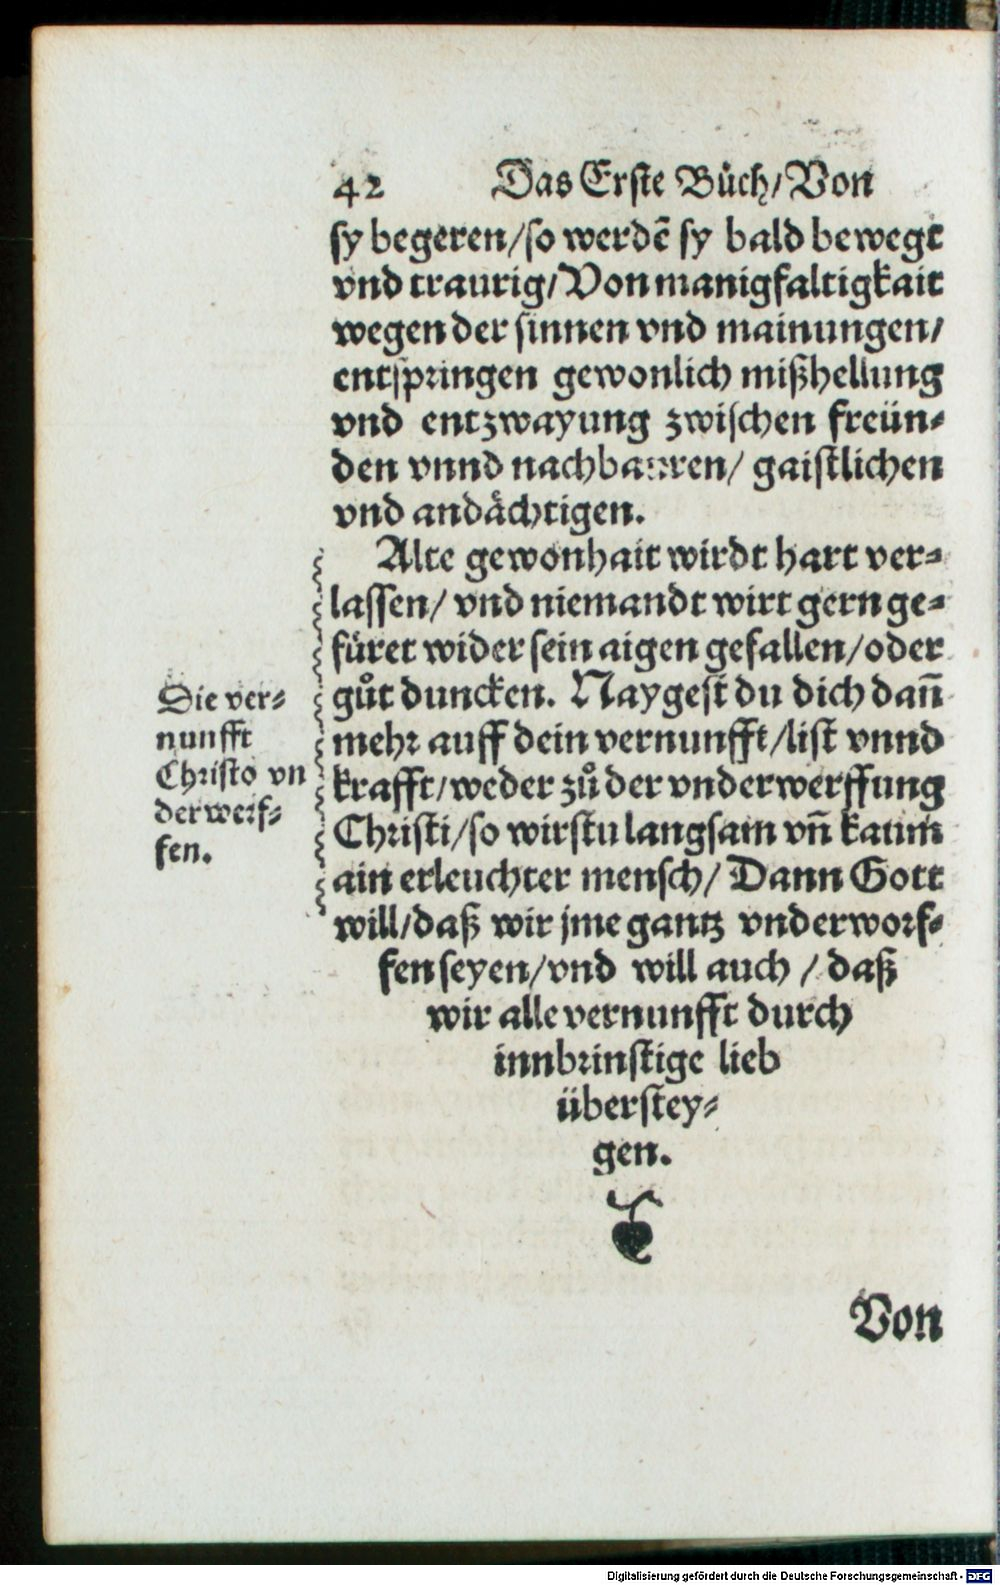 42 Das Erste Bůch/ Von
sy begeren/ so werdẽ sy bald bewegt
vnd traurig/ Von manigfaltigkait
wegen der sinnen vnd mainungen/
entspringen gewonlich mißhellung
vnd entzwayung zwischen freün-
den vnnd nachbauren/ gaistlichen
vnd andächtigen.
Alte gewonhait wirdt hart ver-
lassen/ vnd niemandt wirt gern ge-
füret wider sein aigen gefallen/ oder
gůt duncken. Naygest du dich dañ
mehr auff dein vernunfft/ list vnnd
krafft/ weder zů der vnderwerffung
Christi/ so wirstu langsam vñ kaum
ain erleuchter mensch/ Dann Gott
will/ daß wir jme gantz vnderworf-
fen seyen/ vnd will auch / daß
wir alle vernunfft durch
innbrinstige lieb
überstey-
gen.
Die ver-
nunfft
Christo vn
der werf-
fen.
Von
Digitalisierung gefördert durch die Deutsche Forschungsgemeinschaft - DFG